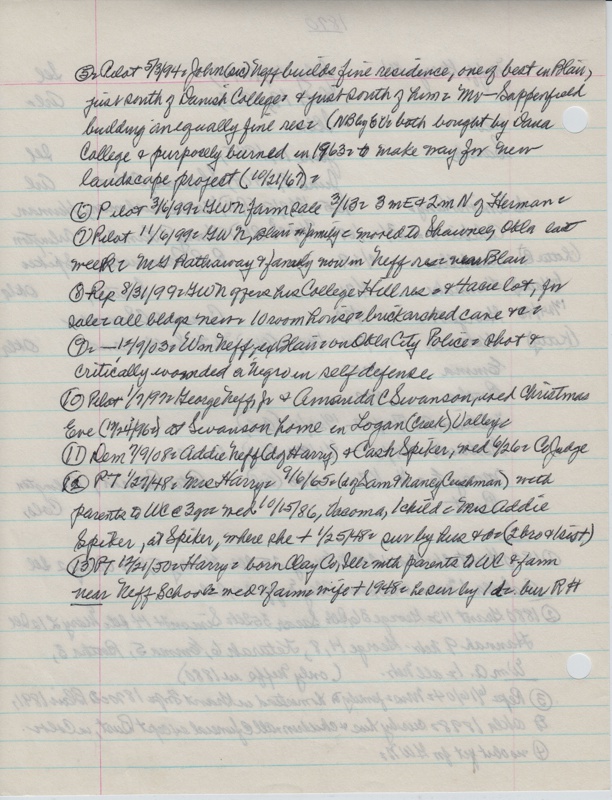 ⑤ = Pilot 5/3/94 = John (sic) Neff builds fine residence, one of best in Blair,
just south of Danish College = & just south of him = Mr — Sappenfield
building an equally fine res = (NB by EV = both bought by Dana
College & purposely burned in 1963 = to make way for new
landscape project (10/21/67) =
⑥ Pilot 3/6/99 = GWN farm sale 3/13 = 3 m E & 2 m N of Herman =
⑦ Pilot 11/6/99 = GWN, Blair & family = moved to Shawnee, Okla last
week = MG Pathaway & family now in Neff res = near Blair
⑧ Rep 8/31/99 = GWN offers his College Hill res = & 4 acre lot, for
sale = all bldgs new = 10 room house = brick arched cave &c =
⑨ = — 12/9/03 = Wm Neff, ex Blair = on Okla City Police = shot &
critically wounded a Negro in self defense
⑩ Pilot 1/7/97 = George Neff, Jr & Amanda C Swanson, wed Christmas
Eve (12/24/96) = at Swanson home in Logan (Creek) Valley =
⑪ Dem 7/9/08 = Addie Neff (d of Harry) & Cash Spiker, wed 6/26 = Co Judge
⑫ PT 1/27/48 = Mrs Harry = 9/6/65 = (d of Sam & Nancy Cushman) with
parents to WC @ 3 yr = wed 10/15/86, Tacoma, 1 child = Mrs Addie
Spiker, at Spiker, where she + 1/25/48 = sur by hus & d = (2 bro & 1 sist)
⑬ PT 12/21/50 = Harry = born Clay Co, Ill = with parents to WC & farm
near Neff School = wed & farm = wife + 1948 = he sur by 1 d = bur RH